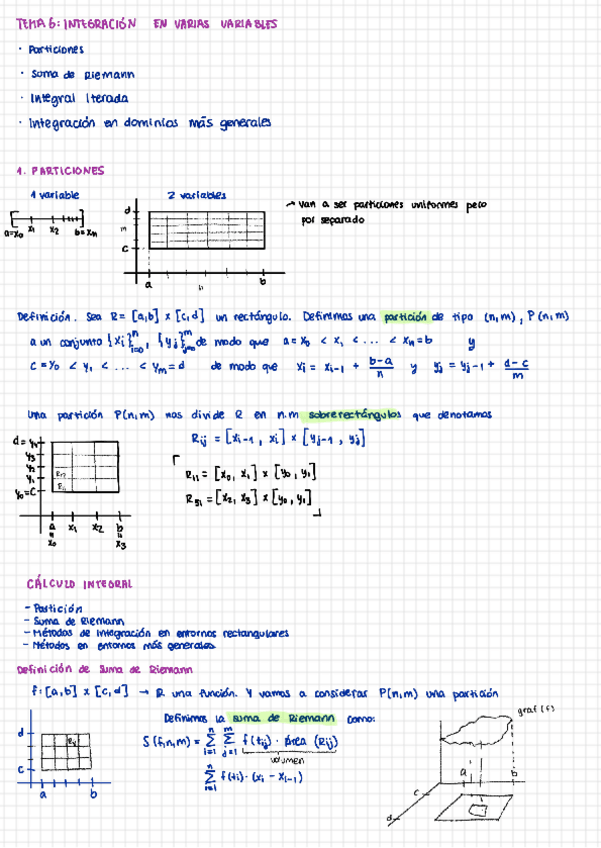 TEMA 6: INTEGRACIÓN EN VARIAS VARIABLES
· Particiones
· Suma de Riemann
· Integral Iterada
· Integración en dominios más generales
1. PARTICIONES
1 variable
2 variables
→ van a ser particiones uniformes pero
por separado
a=x₀ x₁ x₂ b=xₙ
d
m
c
a
n
b
Definición. Sea R= [a,b] x [c,d] un rectángulo. Definimos una partición de tipo (n,m), P(n,m)
a un conjunto {xi}ⁿᵢ₌₀, {yj}ᵐⱼ₌₀ de modo que a=x₀ < x₁ < ... < xₙ=b y
c=y₀ < y₁ < ... < yₘ=d de modo que xi = xi-1 + (b-a)/n y yj = yj-1 + (d-c)/m
Una partición P(n,m) nos divide R en n.m sobrerectángulos que denotamos
Rij = [xi-1, xi] x [yj-1, yj]
d=y₄
y₃
y₂
y₁
y₀=c
R₁₂
R₁₁
a x₁ x₂ b
x₀ x₃
R₁₁ = [x₀, x₁] x [y₀, y₁]
R₃₁ = [x₂, x₃] x [y₀, y₁]
CÁLCULO INTEGRAL
- Partición
- Suma de Riemann
- Métodos de integración en entornos rectangulares
- Métodos en entornos más generales
Definición de Suma de Riemann
f: [a,b] x [c,d] → R una función. Y vamos a considerar P(n,m) una partición
Definimos la suma de Riemann como:
S(f,n,m) = Σⁿᵢ₌₁ Σᵐⱼ₌₁ f(tij) · área (Rij)
volumen
Σⁿᵢ₌₁ f(ti) · (xi - xi-1)
d
c
a
b
graf(f)
a
b
c
d